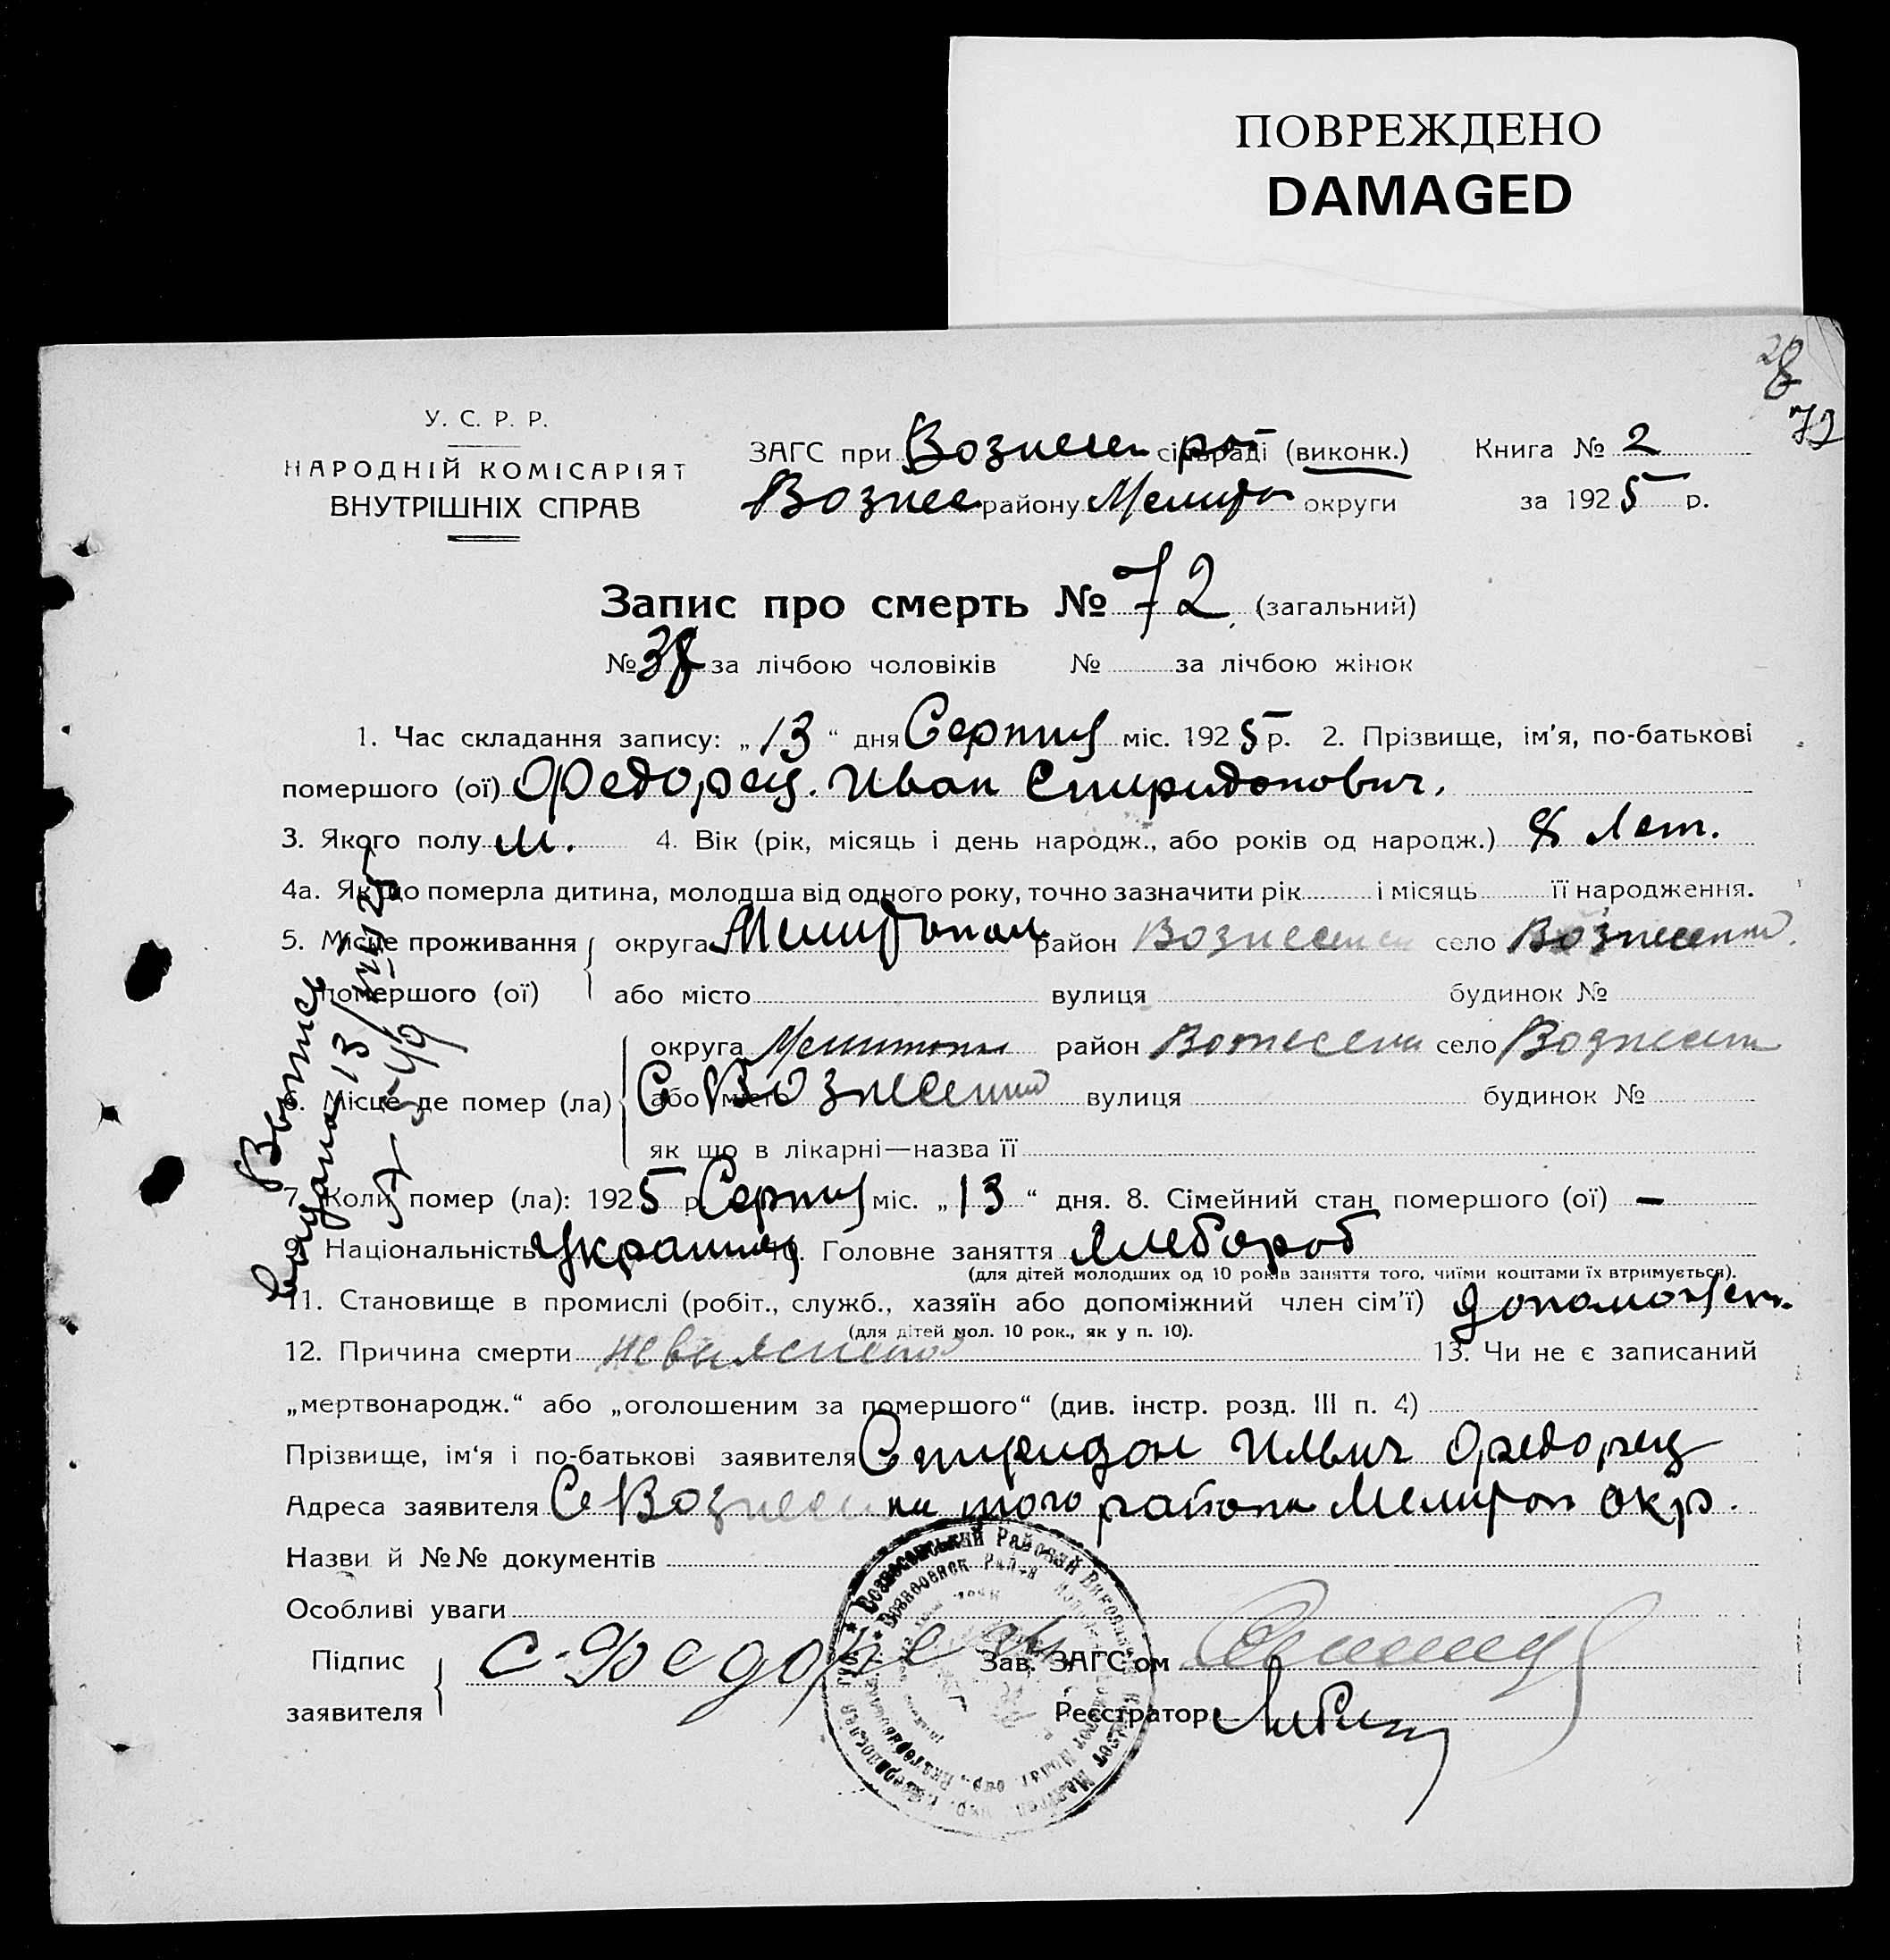 ПОВРЕЖДЕНО
DAMAGED
28
72
У. С. Р. Р.
НАРОДНІЙ КОМІСАРІЯТ
ВНУТРІШНІХ СПРАВ
ЗАГС при Вознесен рай сільраді (виконк.) Книга № 2
Вознес району Мелитоп округи за 1925 р.
Запис про смерть № 72 (загальний)
№ 38 за лічбою чоловіків № за лічбою жінок
1. Час складання запису: „13“ дня Серпня міс. 1925 р. 2. Прізвище, ім'я, по-батькові
помершого (ої) Федорец. Иван Спиридонович.
3. Якого полу м. 4. Вік (рік, місяць і день народж., або років од народж.) 8 лет.
4а. Якщо померла дитина, молодша від одного року, точно зазначити рік і місяць її народження.
5. Місце проживання округа Мелитопол район Вознесен село Вознесенка
помершого (ої) або місто вулиця будинок №
округа Мелитопол район Вознесен село Вознесен
6. Місце де помер (ла) або місто С Вознесенка вулиця будинок №
як що в лікарні—назва її
7. Коли помер (ла): 1925 р. Серпня міс. „13“ дня. 8. Сімейний стан помершого (ої) —
Національність Украинец 10. Головне заняття Хлебороб
(для дітей молодших од 10 років заняття того, чиїми коштами їх втримується).
11. Становище в промислі (робіт., служб., хазяїн або допоміжний член сім'ї) допоможн.
(для дітей мол. 10 рок., як у п. 10).
12. Причина смерти невияснено 13. Чи не є записаний
„мертвонародж.“ або „оголошеним за помершого“ (див. інстр. розд. III п. 4)
Прізвище, ім'я і по-батькові заявителя Спиридон Ильич Федорец
Адреса заявителя С Вознесенка того района Мелитоп окр.
Назви й №№ документів
Особливі уваги
Підпис
заявителя
С. Федорец
Зав. ЗАГС'ом
Реєстратор
Вознесенський Районий Виконавчий Комітет
Выпись
выдана 13/